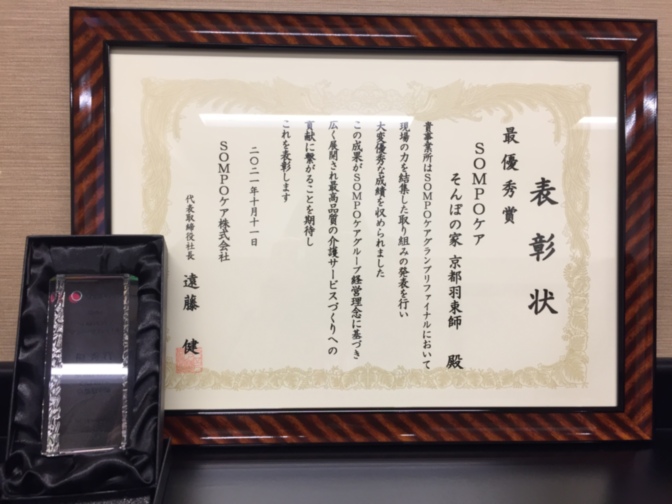 表彰状
最優秀賞
SOMPOケア
そんぽの家 京都羽束師 殿
貴事業所はSOMPOケアグランプリファイナルにおいて
現場の力を結集した取り組みの発表を行い
大変優秀な成績を収められました
この成果がSOMPOケアグループ経営理念に基づき
広く展開され最高品質の介護サービスづくりへの
貢献に繋がることを期待し
これを表彰します
二〇二一年十月十一日
SOMPOケア株式会社
代表取締役社長 遠藤 健